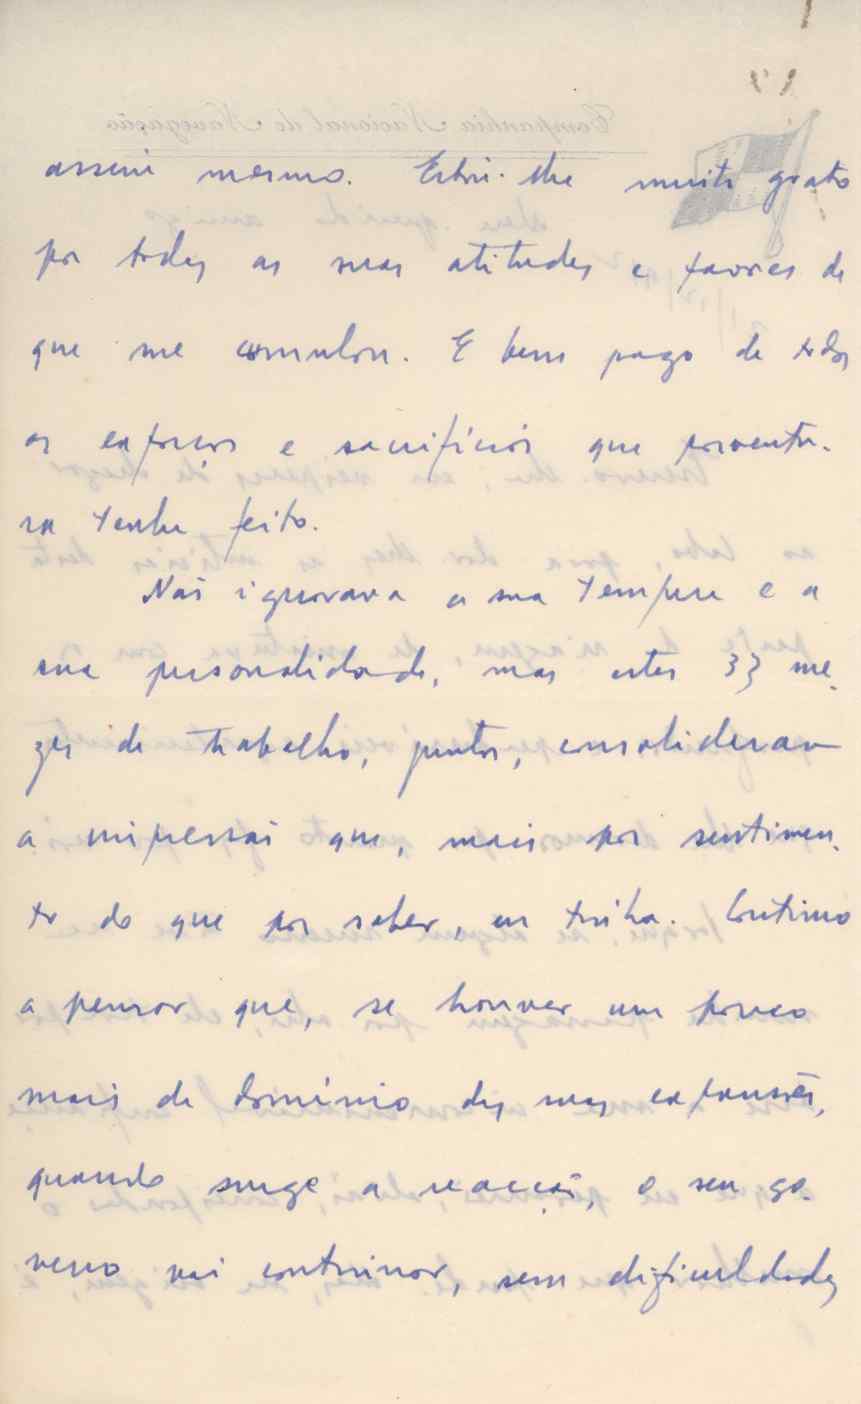 assim mesmo. Estou-lhe muito grato
por todas as suas atitudes e favores de
que me cumulou. E bem pago de todos
os esforços e sacrifícios que porventu-
ra tenha feito.
Não ignorava a sua tempera e a
sua personalidade, mas estes 33 me-
zes de trabalho, juntos, consolidaram
a impressão que, mais por sentimen-
to do que por saber, eu tinha. Continuo
a pensar que, se houver um pouco
mais de domínio das suas expansões,
quando surge a reacção, o seu go-
verno vai continuar, sem dificuldades